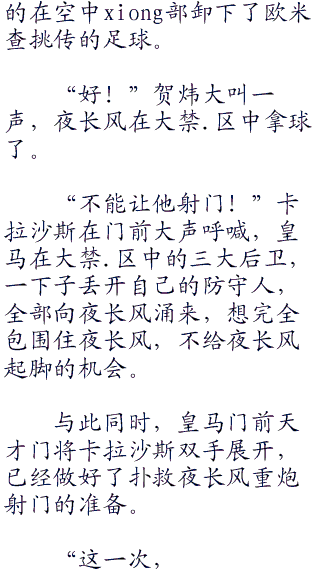 的在空中xiong部卸下了欧米
查挑传的足球。
“好！”贺炜大叫一
声，夜长风在大禁.区中拿球
了。
“不能让他射门！”卡
拉沙斯在门前大声呼喊，皇
马在大禁.区中的三大后卫，
一下子丢开自己的防守人，
全部向夜长风涌来，想完全
包围住夜长风，不给夜长风
起脚的机会。
与此同时，皇马门前天
才门将卡拉沙斯双手展开，
已经做好了扑救夜长风重炮
射门的准备。
“这一次，